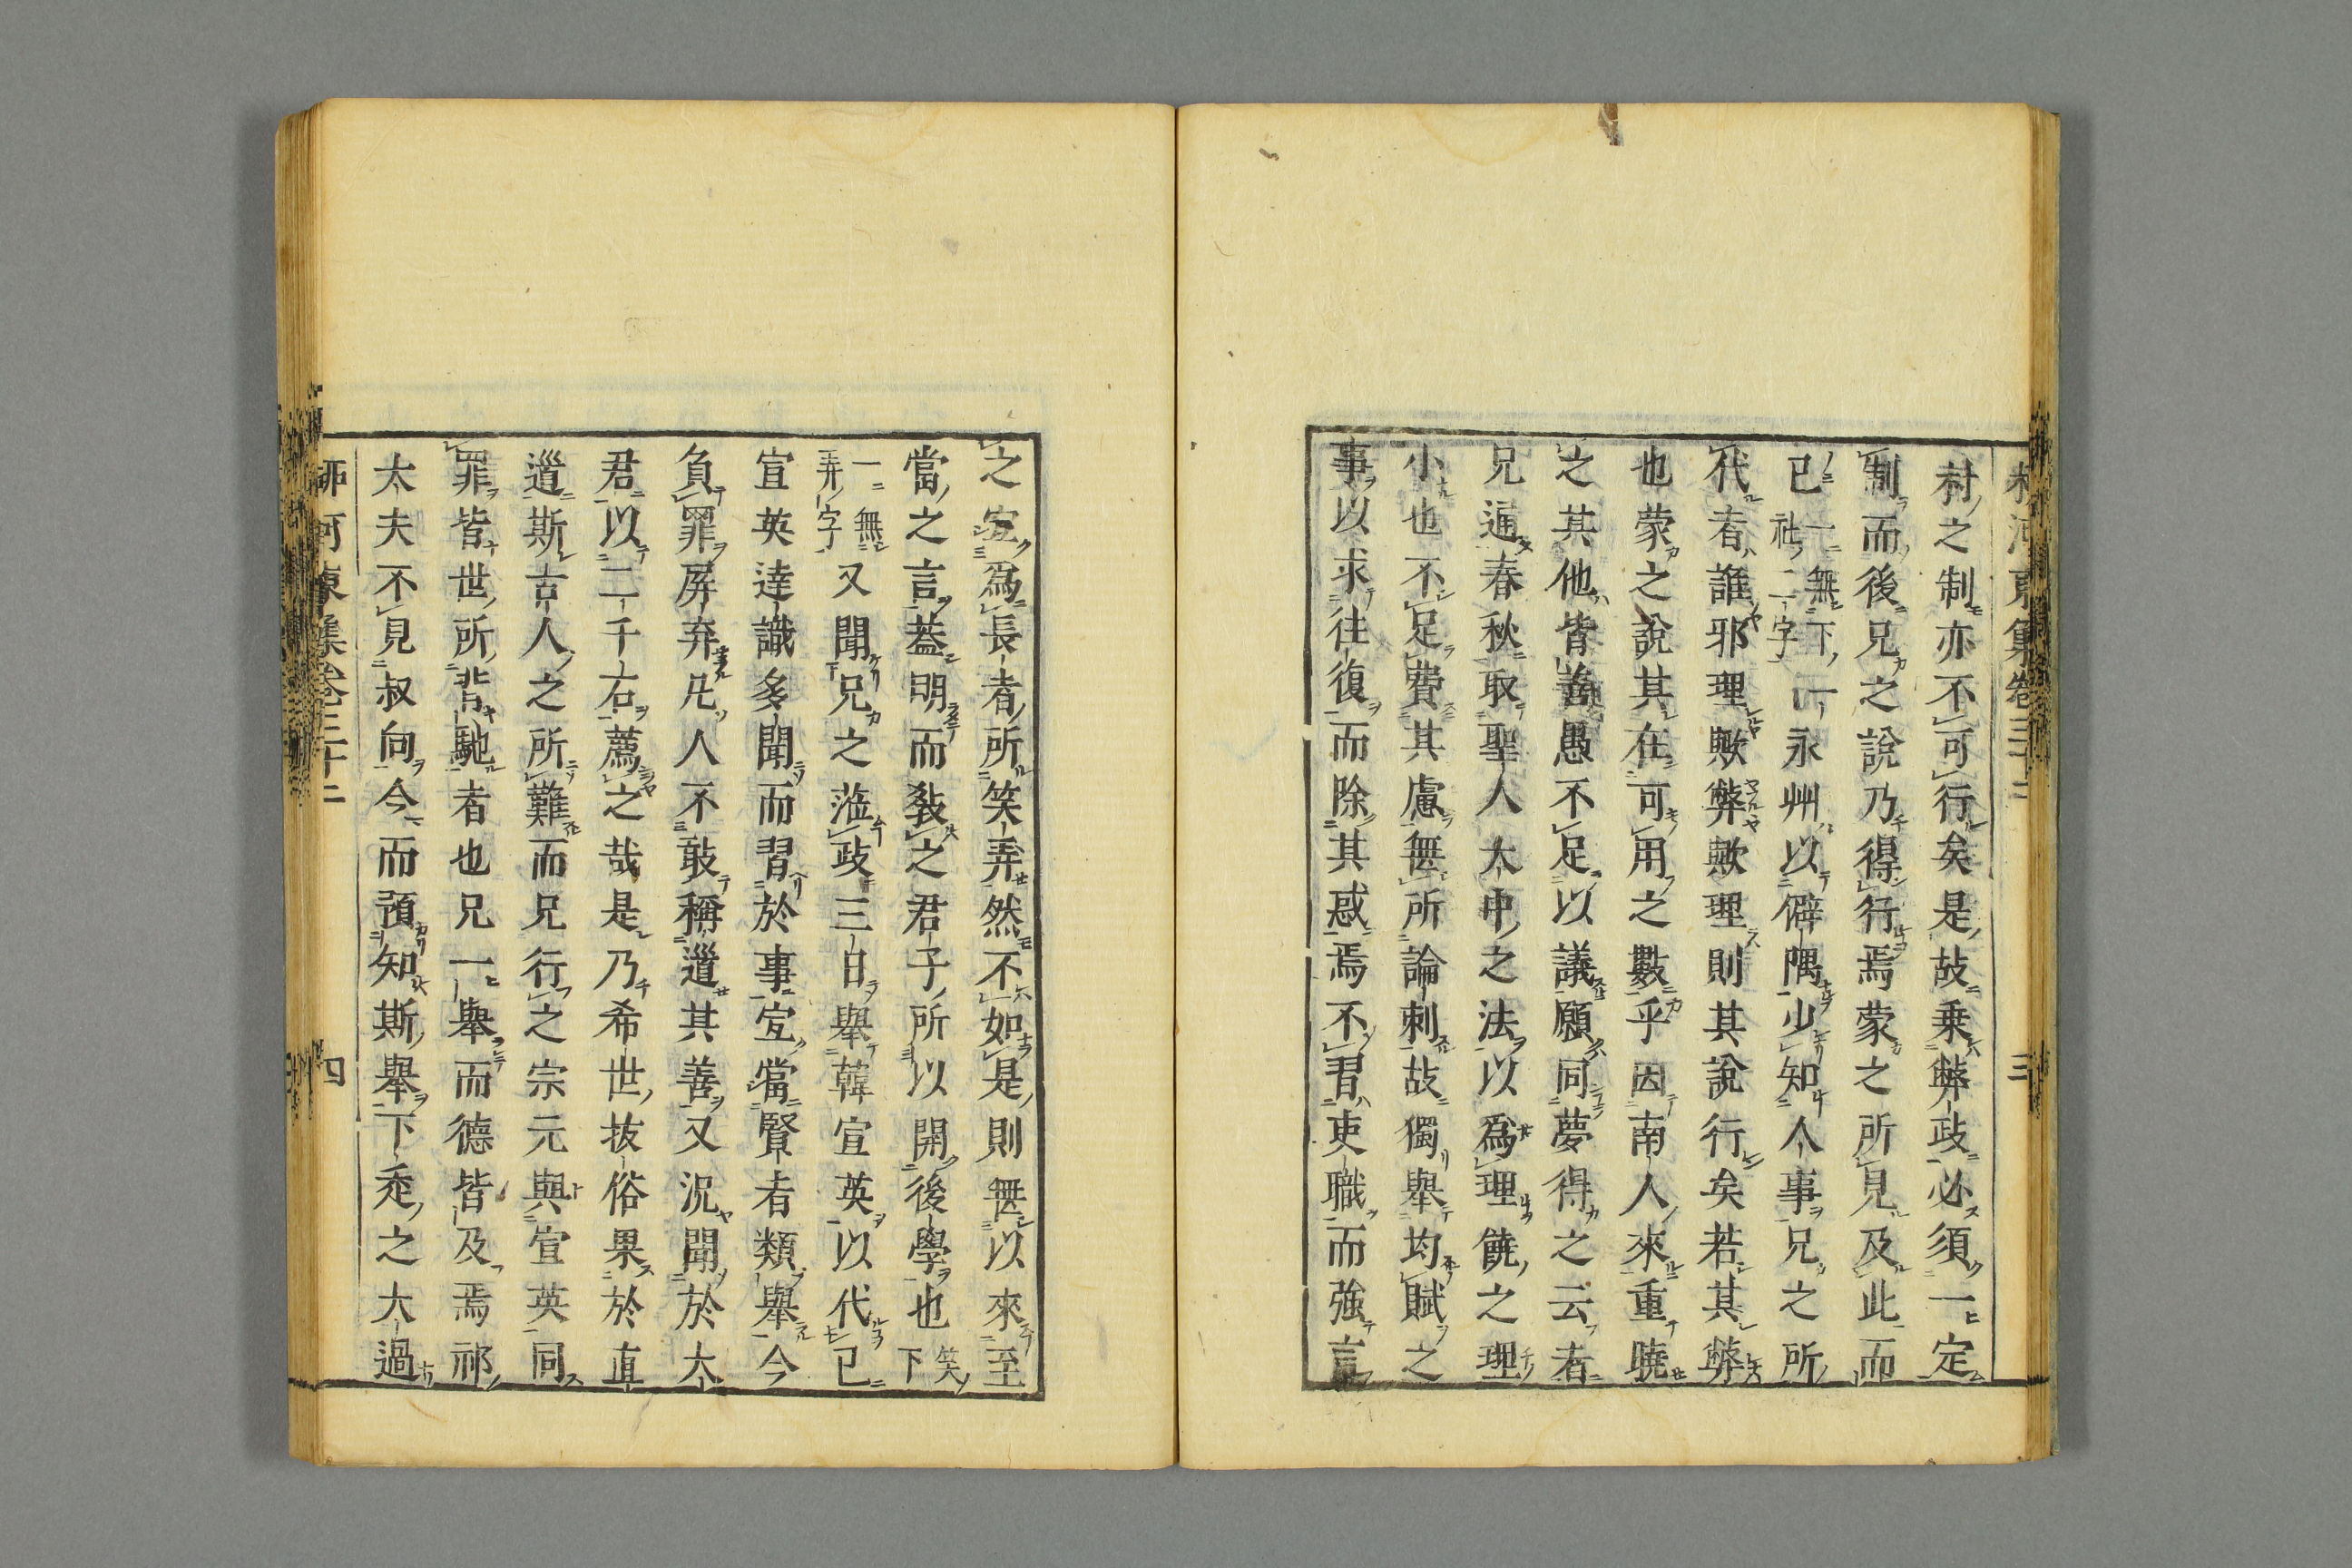 柳河東集卷三十二
三
村之制亦不可行矣是故乗弊政必須一定
制而後兄之說乃得行焉蒙之所見及此而
已一無下一社二字永州以僻隅少知人事兄之所
代者誰耶理歟弊歟理則其說行矣若其弊
也蒙之說其在可用之數乎因南人來重曉
之其他皆善愚不足以議願同夢得之云者
兄通春秋取聖人大中之法以爲理饒之理
小也不足費其慮無所論刺故獨舉均賦之
事以求往復而除其惑焉不習吏職而強言
之宜爲長者所笑弄然不如是則無以來至
當之言蓋明而教之君子所以開後學也笑下
一無弄字又聞兄之蒞政三日舉韓宣英以代已
宣英達識多聞而習於事宜當賢者類舉今
負罪屏弃凡人不敢稱道其善又況聞於大
君以二千石薦之哉是乃希世拔俗果於直
道斯古人之所難而兄行之宗元與宣英同
罪皆世所背馳者也兄一舉而德皆及焉祁
大夫不見叔向今而預知斯舉下走之大過
柳河東集卷三十二
四